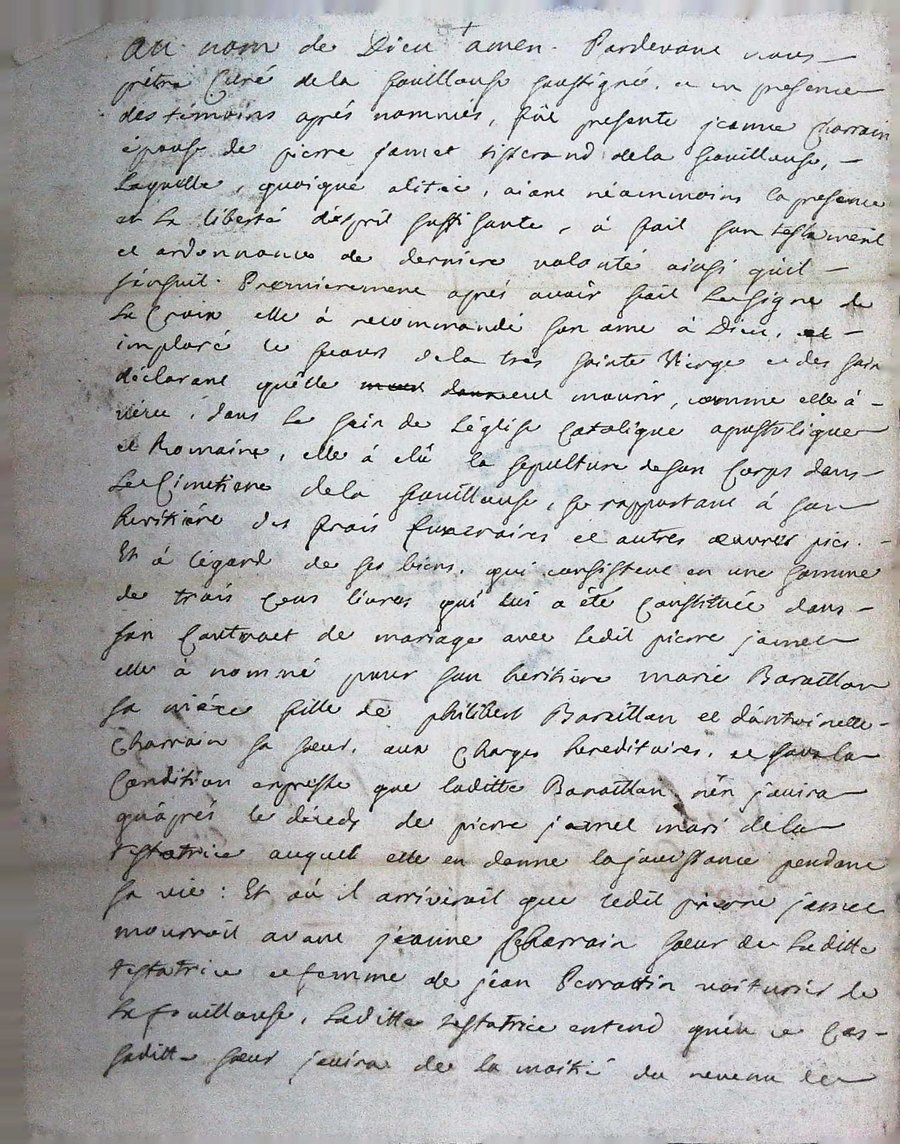 au nom de Dieu amen. Pardevant nous
prêtre Curé de la fouillouse soussigné, et en presence
des témoins aprés nommés, fût presente jeanne Charrain
épouse de pierre jamet tisserand de la fouillouse,
laquelle, quoique alitée, aiant néanmoins la presence
et la liberté d'esprit suffisante, à fait son testament
et ordonnance de derniere volonté ainsi qu'il
s'ensuit. Premierement aprés avoir fait le signe de
la Croix elle à recommandé son ame à Dieu, et
imploré le secours de la trés sainte Vierge et des sain
déclarant qu'elle veut mourir, comme elle à
vécu, dans le sein de L'église catolique apostolique
et Romaine, elle à élû la sépulture de son Corps dans
le Cimetiere de la fouillouse, se rapportant à son
heritiére des frais funeraires et autres œuvres pies.
Et à l'égard de ses biens, qui consistent en une somme
de trois cens livres qui lui a été Constituée dans
son Contract de mariage avec ledit pierre jamet
elle à nommé pour son heritiere marie Baraillon
sa niéce fille de philibert Baraillon et d'antoinette
Charrain sa sœur, aux Charges hereditaires, et sous la
Condition expresse que laditte Baraillon n'en jouira
qu'aprés le deceds de pierre jamet mari de la
testatrice auquel elle en donne la jouissance pendant
sa vie : Et où il arriverait que ledit pierre jamet
mourrait avant jeanne Charrain sœur de laditte
testatrice et femme de jean Perrottin voiturier de
la fouillouse, laditte testatrice entend qu'en ce Cas
saditte sœur jouira de la moitié du revenu de